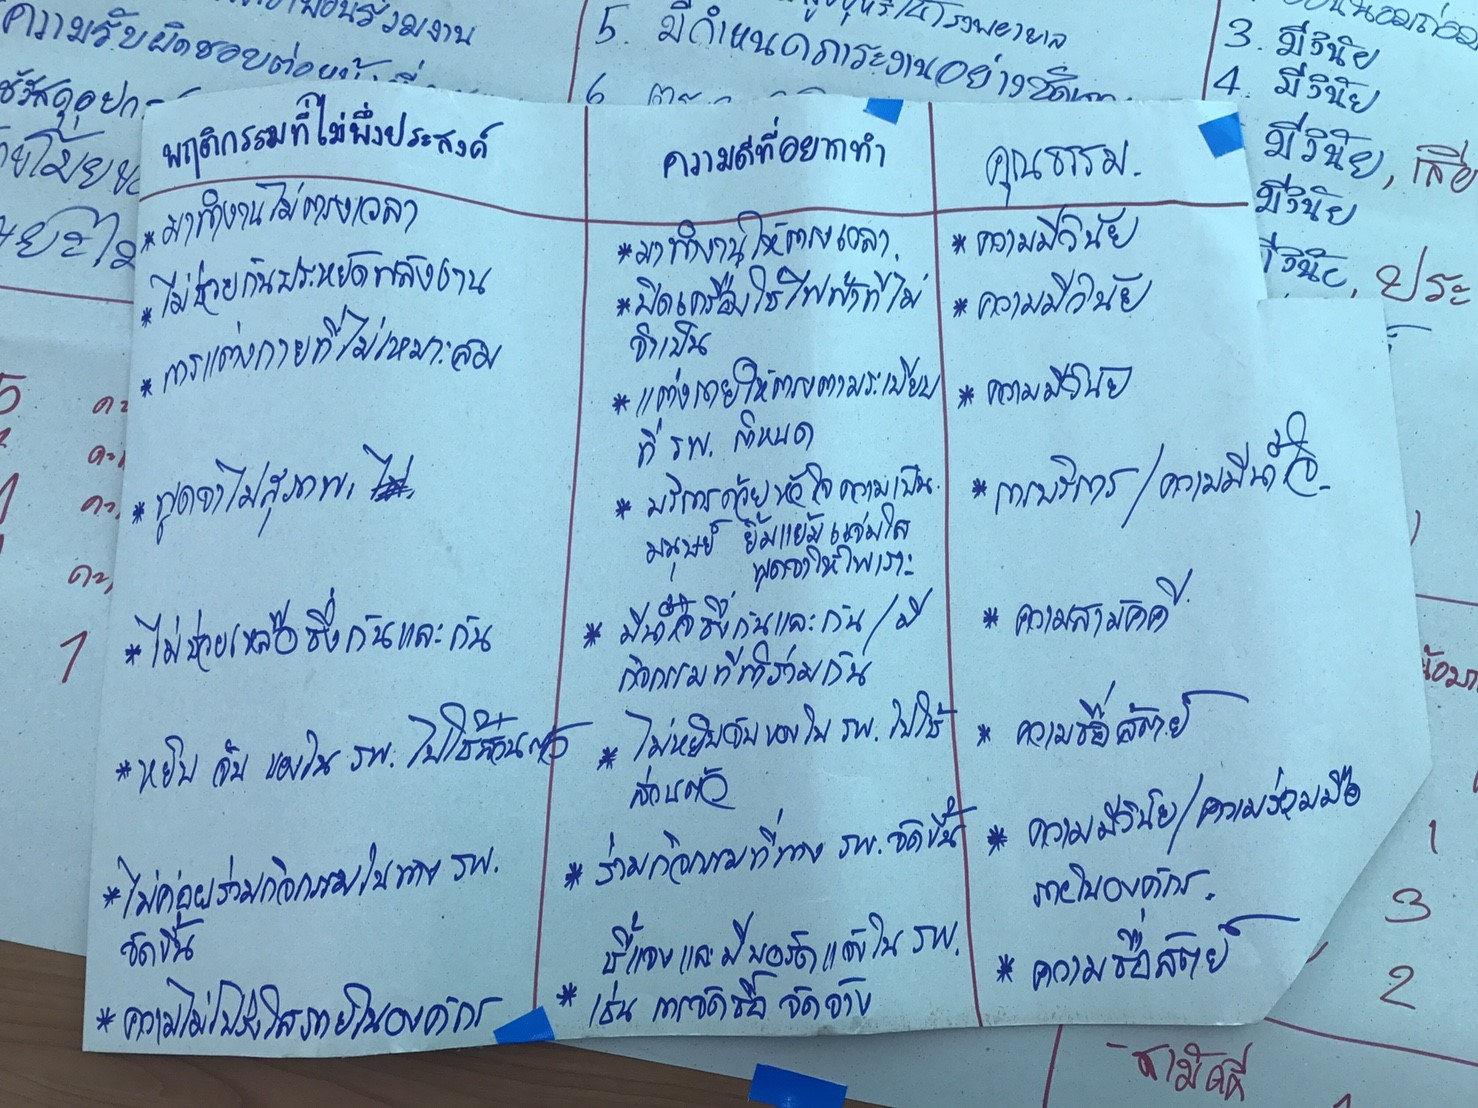 ความรับผิดชอบต่อหน้าที่
5. มีกำหนดภาระงานอย่างชัดเจน
6.
3. มีวินัย
4. มีวินัย
มีวินัย,
มีวินัย
มีวินัย, ประ
พฤติกรรมที่ไม่พึงประสงค์
ความดีที่อยากทำ
คุณธรรม.
* มาทำงานไม่ตรงเวลา
* มาทำงานให้ตรงเวลา.
* ความมีวินัย
* ไม่ช่วยกันประหยัดพลังงาน
* ปิดเครื่องใช้ไฟฟ้าที่ไม่
จำเป็น
* ความมีวินัย
* การแต่งกายที่ไม่เหมาะสม
* แต่งกายให้ตรงตามระเบียบ
ที่ รพ. กำหนด
* ความมีวินัย
* พูดจาไม่สุภาพ.
* บริการด้วยหัวใจความเป็น
มนุษย์ ยิ้มแย้มแจ่มใส
พูดจาให้ไพเราะ
* การบริการ/ความมีน้ำใจ.
* ไม่ช่วยเหลือซึ่งกันและกัน
* มีน้ำใจซึ่งกันและกัน/มี
กิจกรรมที่ทำร่วมกัน
* ความสามัคคี
* หยิบ จับ ของใน รพ. ไปใช้ส่วนตัว
* ไม่หยิบจับของใน รพ. ไปใช้
ส่วนตัว
* ความซื่อสัตย์
* ไม่ค่อยร่วมกิจกรรมในทาง รพ.
จัดขึ้น
* ร่วมกิจกรรมที่ทาง รพ. จัดขึ้น
* ความมีวินัย/ความร่วมมือ
ภายในองค์กร.
* ความไม่โปร่งใสภายในองค์กร
ชี้แจงและมีบอร์ดแจ้งใน รพ.
* เช่น การจัดซื้อ จัดจ้าง
* ความซื่อสัตย์
1
1
3
2
สามัคคี